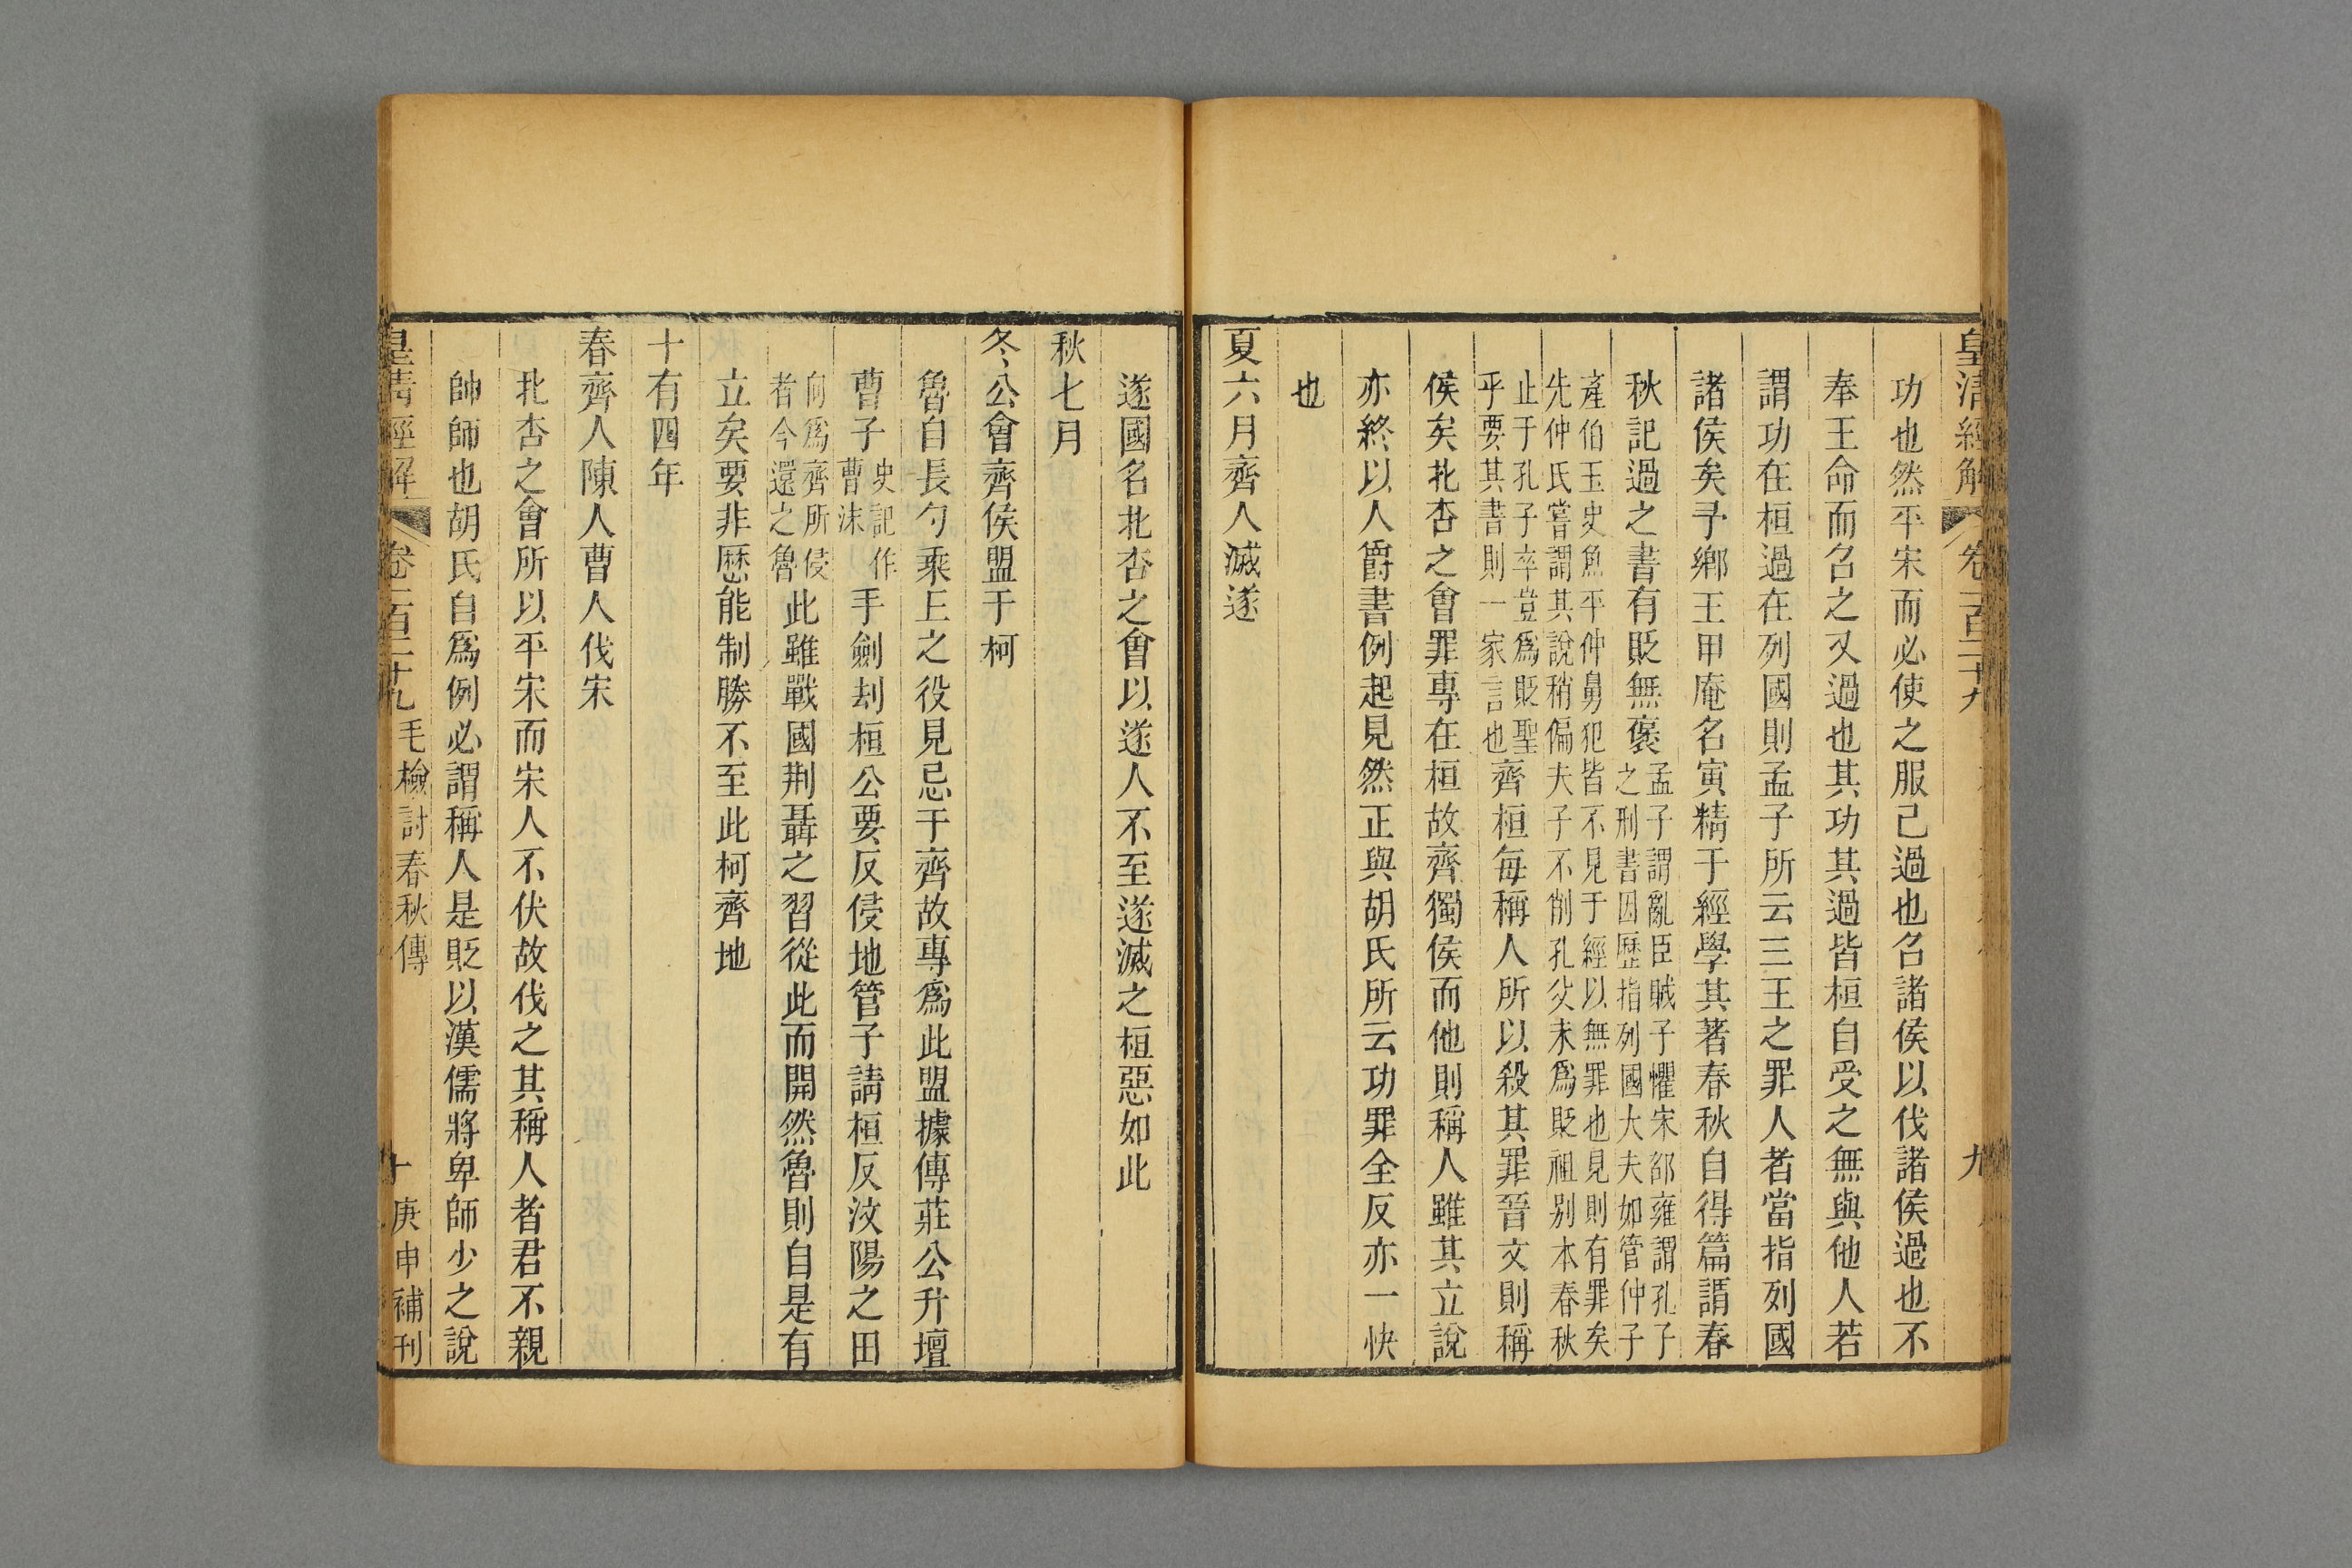 皇清經解 卷一百二十九 九
功也然平宋而必使之服己過也名諸侯以伐諸侯過也不
奉王命而名之又過也其功其過皆桓自受之無與他人若
謂功在桓過在列國則孟子所云三王之罪人者當指列國
諸侯矣予鄉王甲庵名寅精于經學其著春秋自得篇謂春
秋記過之書有貶無褒孟子謂亂臣賊子懼宋邵雍謂孔子
之刑書因歷指列國大夫如管仲子
產伯玉史魚平仲舅犯皆不見于經以無罪也見則有罪矣
先仲氏嘗謂其說稍偏夫子不削孔父未爲貶祖别本春秋
止于孔子卒豈爲貶聖
乎要其書則一家言也齊桓每稱人所以殺其罪晉文則稱
侯矣北杏之會罪專在桓故齊獨侯而他則稱人雖其立說
亦終以人爵書例起見然正與胡氏所云功罪全反亦一快
也
夏六月齊人滅遂
遂國名北杏之會以遂人不至遂滅之桓惡如此
秋七月
冬公會齊侯盟于柯
魯自長勺乘上之役見忌于齊故專爲此盟據傳莊公升壇
曹子史記作
曹沫手劍刦桓公要反侵地管子請桓反汶陽之田
向爲齊所侵
者今還之魯此雖戰國荆聶之習從此而開然魯則自是有
立矣要非歷能制勝不至此柯齊地
十有四年
春齊人陳人曹人伐宋
北杏之會所以平宋而宋人不伏故伐之其稱人者君不親
帥師也胡氏自爲例必謂稱人是貶以漢儒將卑師少之說
皇清經解 卷一百二十九 毛檢討春秋傳 十 庚申補刊